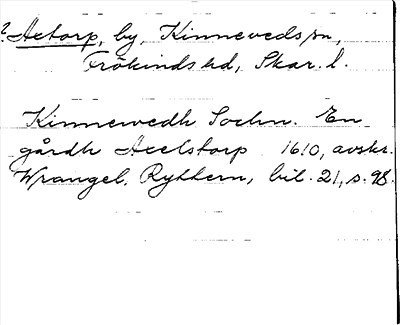 ? Aetorp, by, Kinneveds sn,
Frökinds hd, Skar. l.
Kinnewedh Sochn. En
gårdh Axelstorp 1610, avskr.
Wrangel, Ryttern, bil. 21, s. 98.